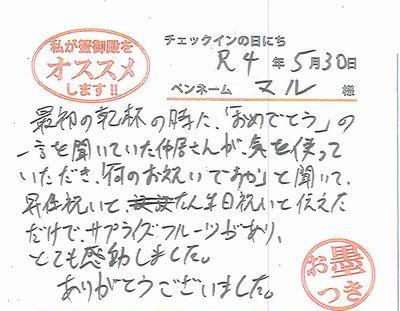 私が蟹御殿を
オススメ
します!!
チェックインの日にち
R4年5月30日
ペンネーム マル 様
最初の乾杯の時に、「おめでとう」の
一言を聞いていた仲居さんが、気を使って
いただき、「何のお祝いですか」と聞いて、
昇任祝いと たん生日祝いと伝えた
だけで、サプライズフルーツがあり、
とても感動しました。
ありがとうございました。
お墨
つき